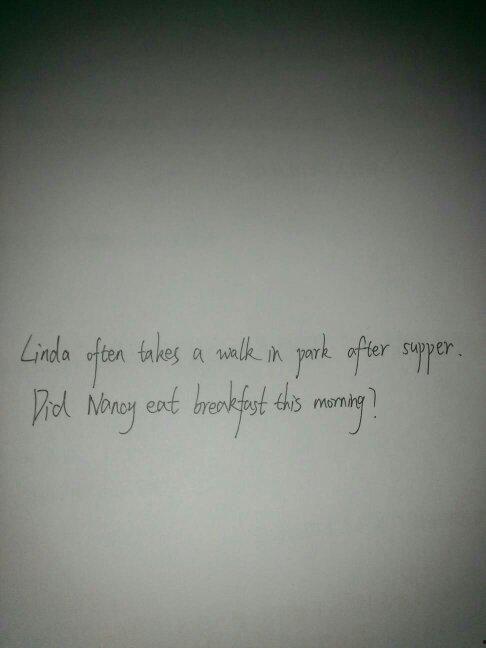 Linda often takes a walk in park after supper.
Did Nancy eat breakfast this morning?